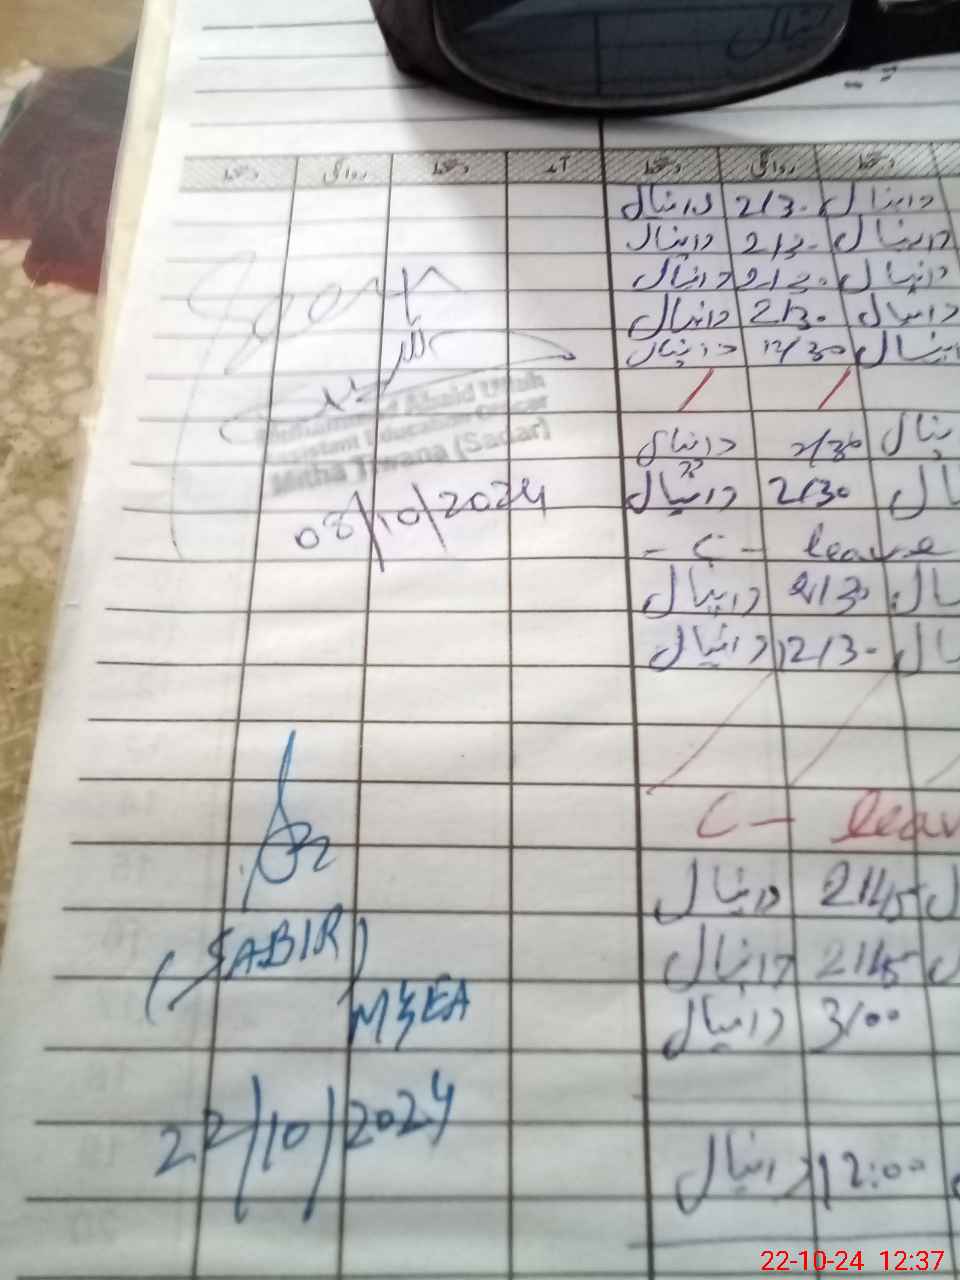 دستخط روانگی دستخط آمد دستخط روانگی دستخط
دانیال 2/30 دانیال
دانیال 2/30 دانیال
دانیال 2/30 دانیال
دانیال 2/30 دانیال
دانیال 12/30 دانیال
دانیال 2/30
دانیال 2/30
- C - leave
دانیال 2/30
دانیال 12/30
Muhammad
Assistant Education Officer
Mitha Tiwana (Sadar)
08/10/2024
C - leav
دانیال 2/45
دانیال 2/45
دانیال 3/00
دانیال 12:00
(SABIR)
MEA
22/10/2024
22-10-24 12:37